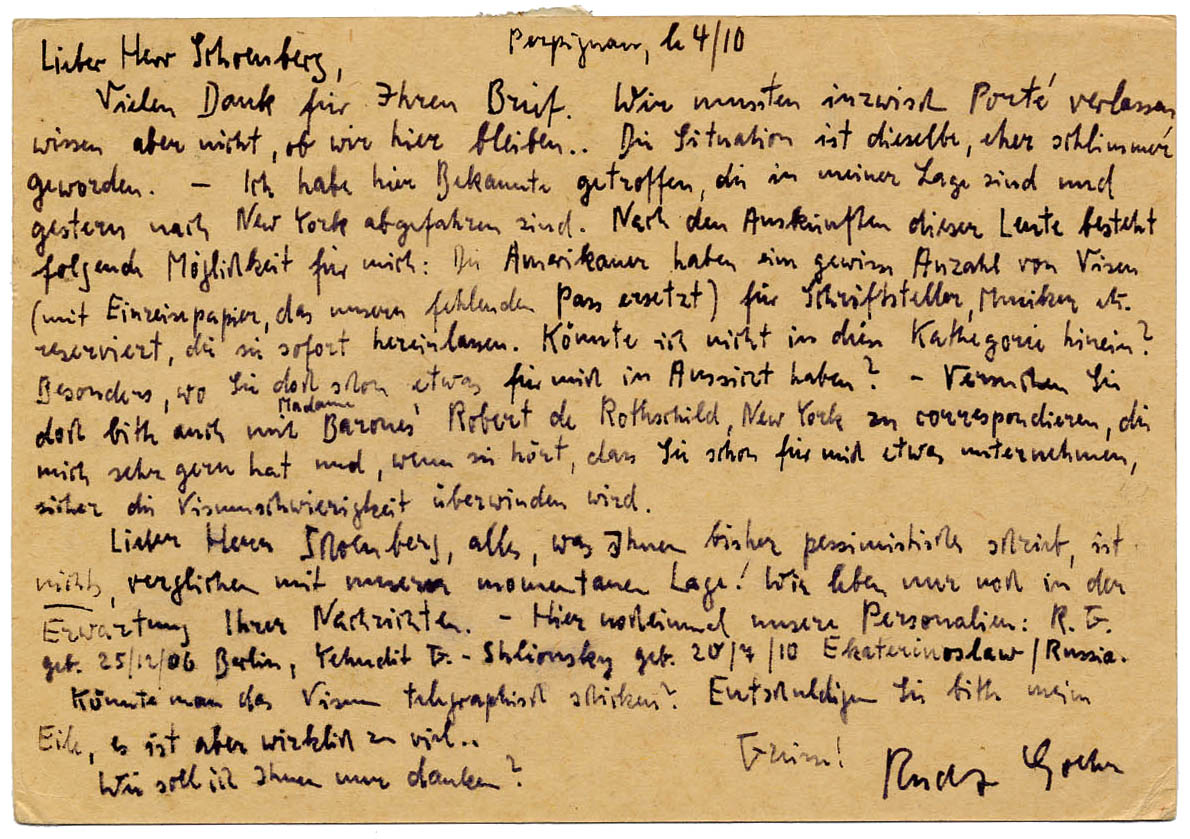 Perpignan, le 4/10
Lieber Herr Schoenberg,
Vielen Dank für Ihren Brief. Wir mussten inzwisch Porté verlassen
wissen aber nicht, ob wir hier bleiben.. Die Situation ist dieselbe, eher schlimmer
geworden. – Ich habe hier Bekannte getroffen, die in meiner Lage sind und
gestern nach New York abgefahren sind. Nach den Auskünften dieser Leute besteht
folgende Möglichkeit für mich: Die Amerikaner haben eine gewisse Anzahl von Visen
(mit Einreisepapier, das unsern fehlenden Pass ersetzt) für Schriftsteller, Musiker etc.
reserviert, die sie sofort hereinlassen. Könnte ich nicht in diese Kathegorie hinein?
Besonders, wo Sie doch schon etwas für mich in Aussicht haben? – Versuchen Sie
doch bitte auch mit Madame Barones Robert de Rothschild, New York zu correspondieren, die
mich sehr gern hat und, wenn sie hört, dass Sie schon für mich etwas unternehmen,
sicher die Visumschwierigkeit überwinden wird.
Lieber Herr Schoenberg, alles, was Ihnen bisher pessimistisch schien, ist
nichts, verglichen mit unserer momentanen Lage! Wir leben nur noch in der
Erwartung Ihrer Nachrichten. – Hier nocheinmal unsere Personalien: R. G.
geb. 25/12/06 Berlin, Yehudit G.-Shlionsky geb. 20/7/10 Ekaterinoslaw/Russia.
Könnte man das Visum telegraphisch schicken? Entschuldigen Sie bitte meine
Eile, es ist aber wirklich zu viel..
Wie soll ich Ihnen nur danken?
Rudolf Goehr